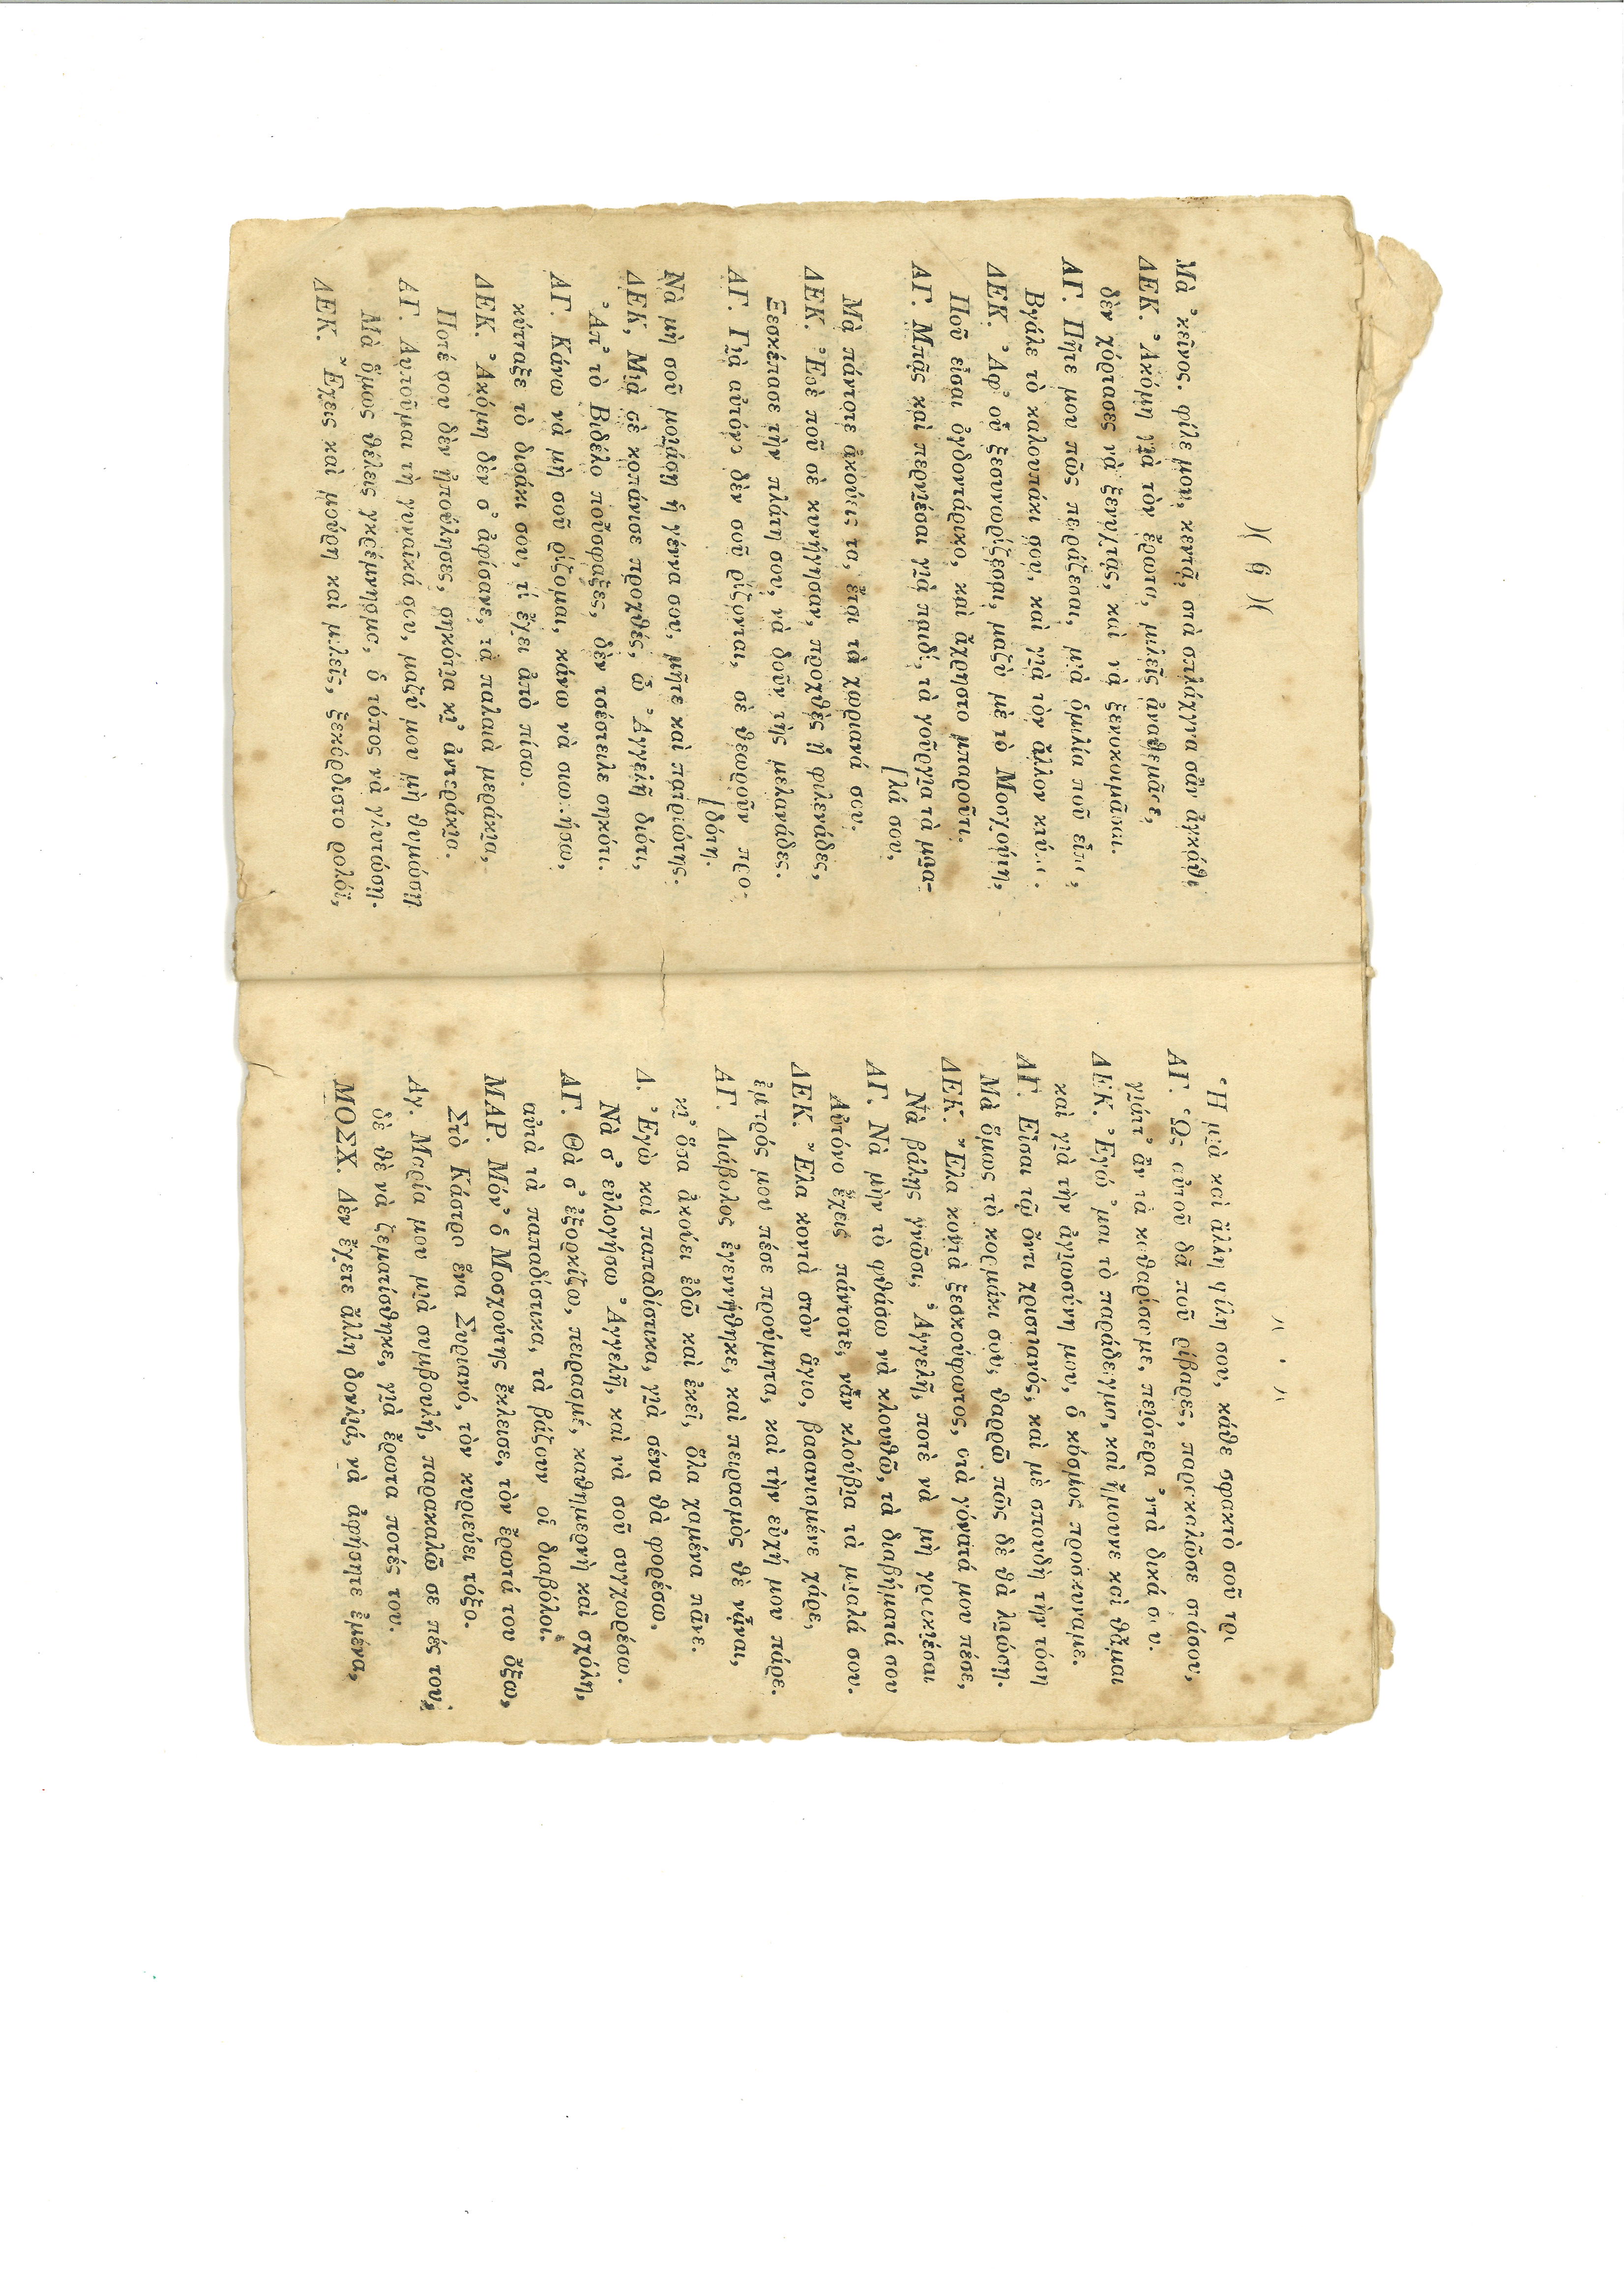 )( 6 )(
Μὰ 'κεῖνος. φίλε μου, κεντᾷ, στὰ σπλάχνα σὰν ἀγκάθι
ΔΕΚ. Ἀκόμη γιὰ τὸν ἔρωτα, μιλεῖς ἀναθεμάσε,
δὲν χόρτασες νὰ ξενυχτᾷς, καὶ νὰ ξενοκοιμᾶσαι.
ΑΓ. Πῆτε μου πῶς πειράζεσαι, μιὰ ὁμιλία ποῦ
Βγάλε τὸ καλουπάκι σου, καὶ γιὰ τὸν ἄλλον
ΔΕΚ. Ἀφ' οὗ ξεσυνωρίζεσαι, μαζὺ μὲ τὸ Μοσχούτη,
Ποῦ εἶσαι ὀγδοντάρικο, καὶ ἄχρηστο μπαροῦτι.
ΑΓ. Μπᾶς καὶ περνιέσαι γιὰ παιδί, τὰ γοῦργια τὰ μυα-
[λά σου,
Μὰ πάντοτε ἀκούεις τα, ἔτσι τὰ χωριανά σου.
ΔΕΚ. Ἐσὲ ποῦ σὲ κυνήγησαν, προχθὲς ᾑ φιλενάδες,
Ξεσκέπασε τὴν πλάτη σου, νὰ δοῦν τῂς μελανάδες.
ΑΓ. Γιὰ αὐτόνο δὲν σοῦ ρίζονται, σὲ θεωροῦν προ-
[δότη.
Νὰ μὴ σοῦ μοιάσῃ ἡ γέννα σου, μῆτε καὶ πατριώτης.
ΔΕΚ, Μιὰ σὲ κοπάνισε προχθές, ὦ Ἀγγελῆ διότι,
Ἀπ' τὸ Βιδέλο ποὔσφαξες, δὲν τσέστειλε σηκότι.
ΑΓ. Κάνω νὰ μὴ σοῦ ρίζομαι, κάνω νὰ
κύτταξε τὸ δισάκι σου, τί ἔχει ἀπὸ πίσω.
ΔΕΚ. Ἀκόμη δὲν σ' ἀφίσανε, τὰ παλαιὰ μεράκια,
Ποτέ σου δὲν ᾐπούλησες, σηκότια κι' ἀντεράκια.
ΑΓ. Λυποῦμαι τὴ γυναῖκά σου, μαζύ μου μὴ θυμώσῃ
Μὰ ὅμως θέλεις γκρέμνησμα, ὁ τόπος νὰ γλυτώσῃ.
ΔΕΚ. Ἔχεις καὶ μούρη καὶ μιλεῖς, ξεκόρδιστο ρολόϊ,
Ἡ μιὰ καὶ ἄλλη φίλη σου, κάθε σφακτὸ σοῦ
ΑΓ. Ὣς αὐτοῦ δὰ ποῦ ρίβαρες, παρακαλῶσε στάσου,
γιάτ' ἂν τὰ καθαρίσωμε, πειότερα 'ντὰ δικά σου.
ΔΕΚ. Ἐγώ 'μαι τὸ παράδειγμα, καὶ ἤμουνε καὶ θἆμαι
καὶ γιὰ τὴν ἁγιωσύνη μου, ὁ κόσμος προσκυνᾶμε.
ΑΓ. Εἶσαι τῷ ὄντι χριστιανός, καὶ μὲ σπουδὴ τὴν τόση
Μὰ ὅμως τὸ κορμάκι σου, θαρρῶ πῶς δὲ θὰ λιώσῃ.
ΔΕΚ. Ἔλα κοντὰ ξεσκούφωτος, στὰ γόνατά μου πέσε,
Νὰ βάλῃς γνῶσι, Ἀγγελῆ, ποτὲ νὰ μὴ χρεικιέσαι
ΑΓ. Νὰ μὴν τὸ φθάσω νὰ κλουθῶ, τὰ διαβήματά σου
Αὐτόνο ἔχεις πάντοτε, νἆν κλούβια τὰ μυαλά σου.
ΔΕΚ. Ἔλα κοντὰ στὸν ἅγιο, βασανισμένε χάρε,
ἐμπρός μου πέσε προύμητα, καὶ τὴν εὐχή μου πάρε.
ΑΓ. Διάβολος ἐγεννήθηκε, καὶ πειρασμὸς θὲ νἆναι,
κι' ὅσα ἀκούει ἐδῶ καὶ ἐκεῖ, ὅλα χαμένα πᾶνε.
Δ. Ἐγὼ καὶ παπαδίστικα, γιὰ σένα θὰ φορέσω.
Νὰ σ' εὐλογήσω Ἀγγελῆ, καὶ νὰ σοῦ συγχωρέσω.
ΑΓ. Θὰ σ' ἐξορκίζω, πειρασμέ, καθημερνὴ καὶ σχόλη,
αὐτὰ τὰ παπαδίστικα, τὰ βάζουν οἱ διαβόλοι.
ΜΑΡ. Μόν' ὁ Μοσχούτης ἔκλεισε, τὸν ἔρωτά του ὄξω,
Στὸ Κάστρο ἕνα Συριανό, τὸν κυριεύει τόξο.
Αγ. Μαρία μου μιὰ συμβουλή, παρακαλῶ σε πές του,
δὲ θὲ νὰ ζεματίσθηκε, γιὰ ἔρωτα ποτές του.
ΜΟΣΧ. Δὲν ἔχετε ἄλλη δουλιά, νὰ ἀφήσητε ἐμένα,